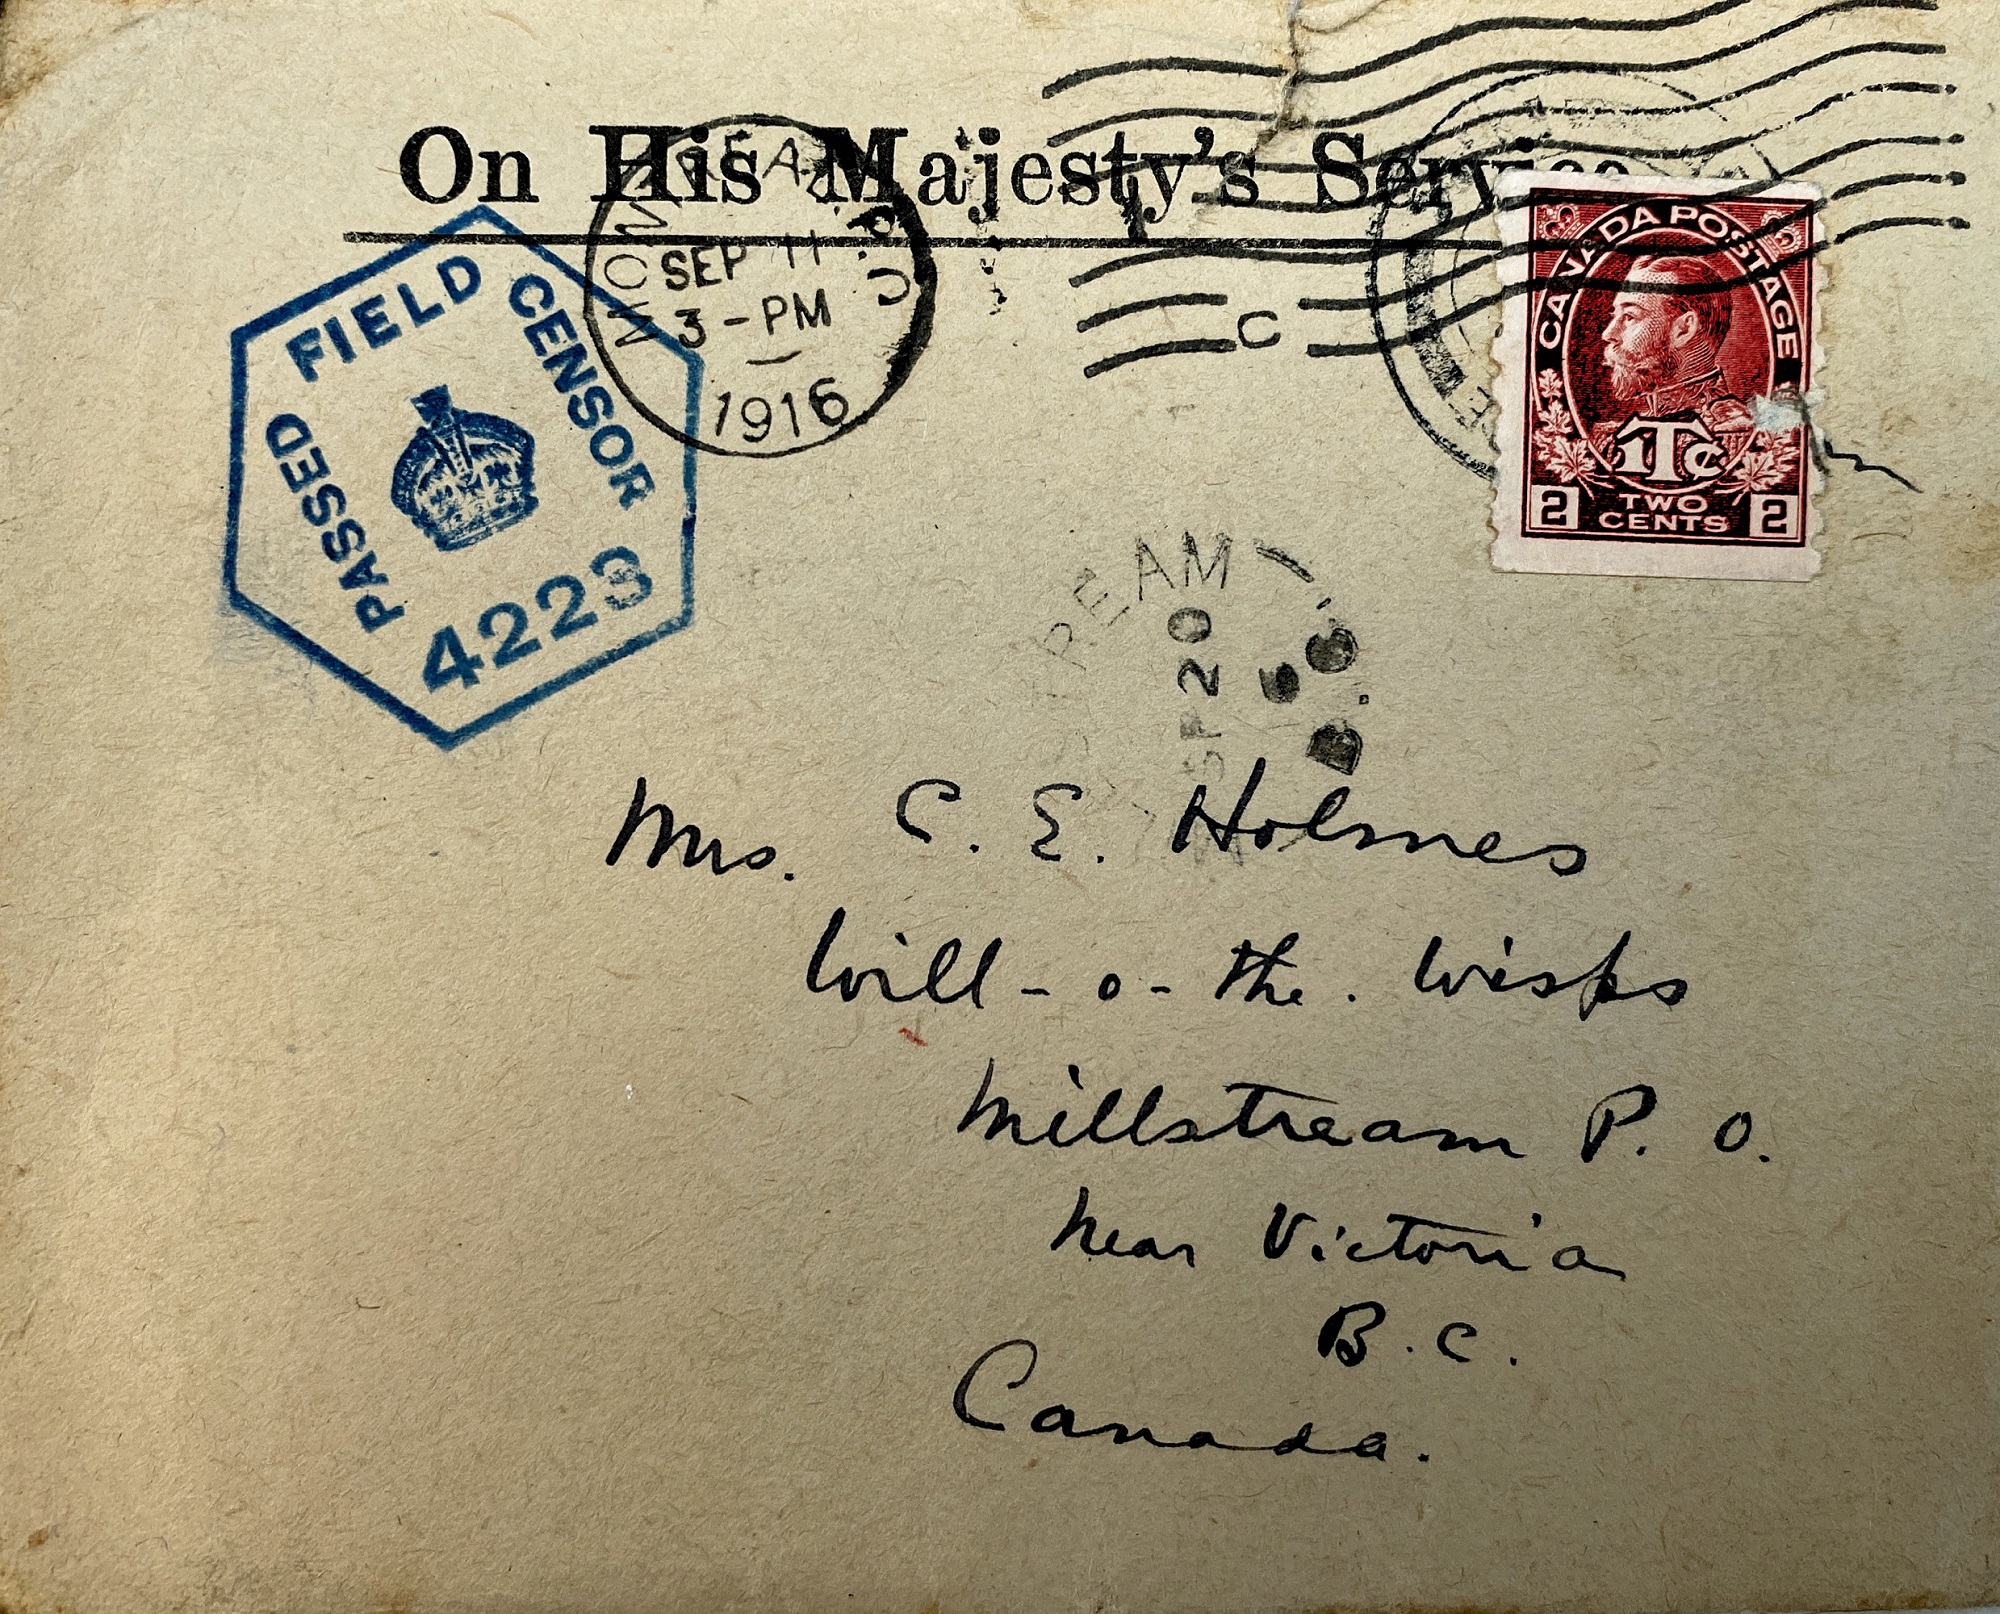 On His Majesty's Service
PASSED FIELD CENSOR
4223
MONTREAL P.Q.
SEP 11
3-PM
1916
C
CANADA POSTAGE
1Tc
2 TWO CENTS 2
REAM
SP 20
16
B.C.
Mrs. C. E. Holmes
Will-o-the. Wisps
Millstream P. O.
near Victoria
B.C.
Canada.